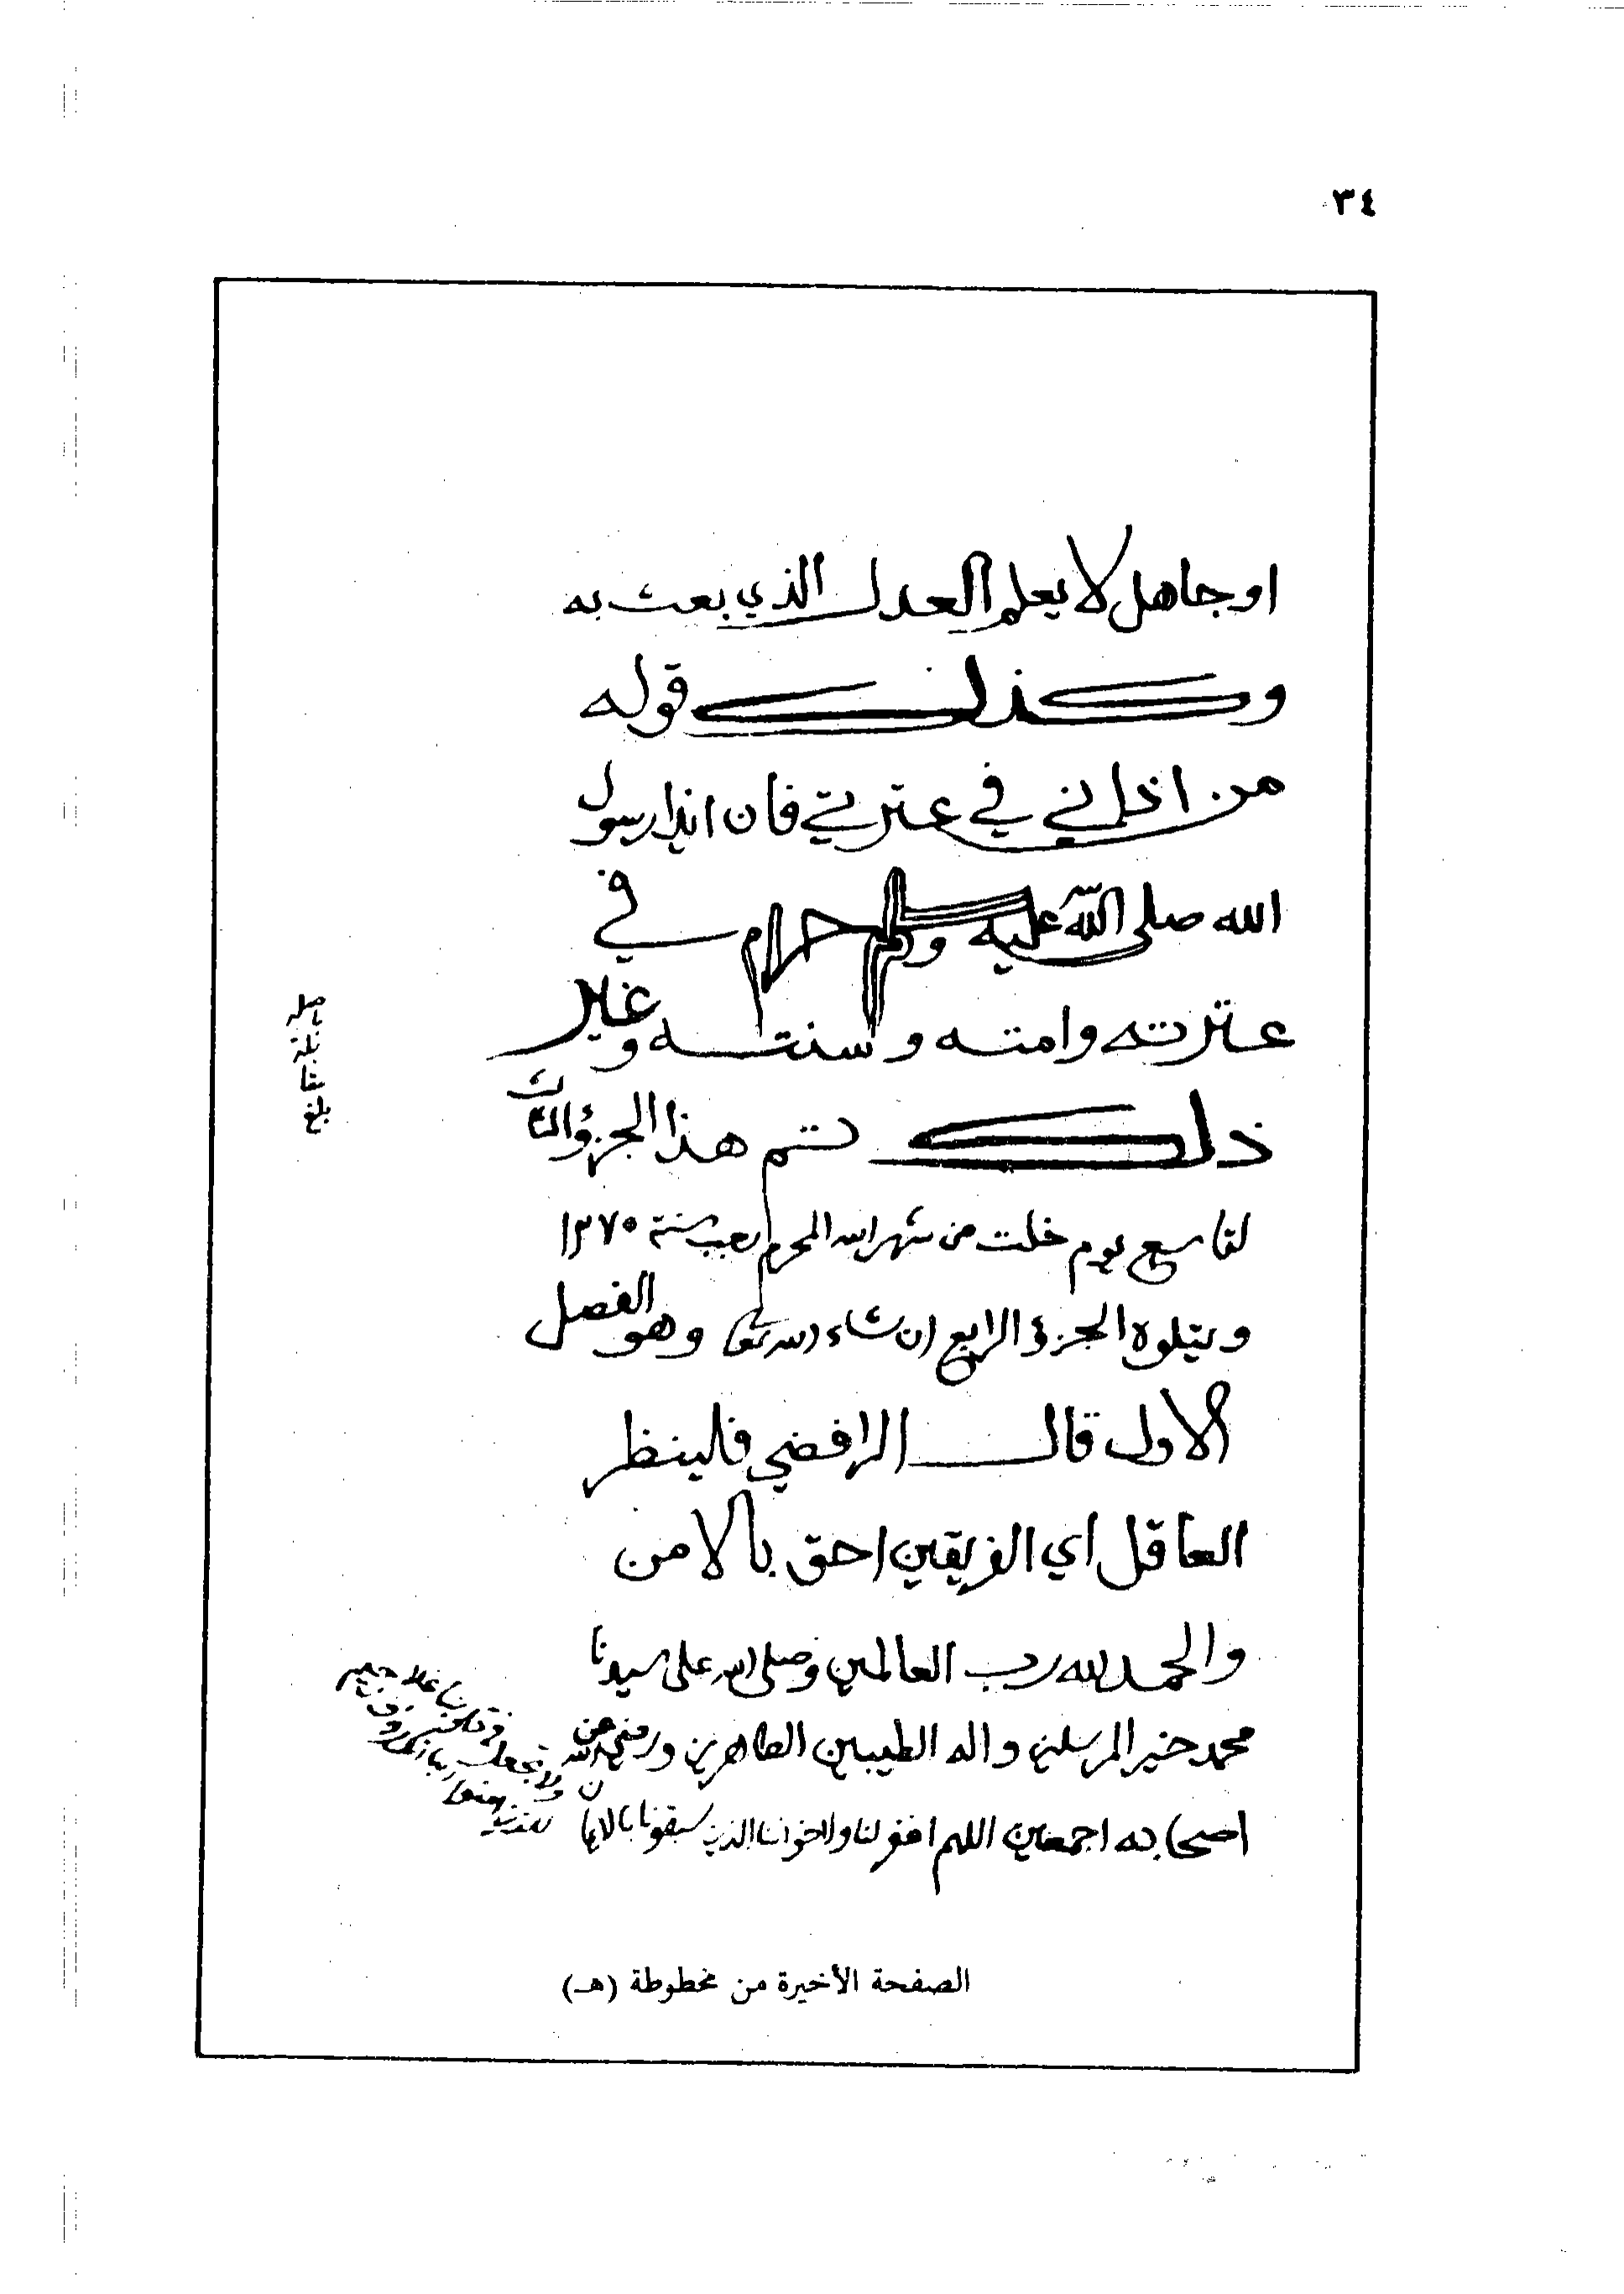 ٣٤
او جاهل لا يعلم العدل الذي بعث به
وكذلك قوله
من اذاني في عترتي فان ايذا رسول
الله صلى الله عليه وسلم حرام في
عترته وامته وسنته وغير
ذلك تم هذا الجزؤ الثالث
لتاسع يوم خلت من شهر الله المحرم سنة ١٢٧٥
ويتلوه الجزؤ الرابع ان شاء الله تعالى وهو الفصل
الاول قال الرافضي فلينظر
العاقل اي الفريقين احق بالامن
والحمد لله رب العالمين وصلى الله على سيدنا
محمد خير المرسلين واله الطيبين الطاهرين ورضي الله عن
اصحابه اجمعين اللهم اغفر لنا ولاخواننا الذين سبقونا بالايمان
ولا تجعل في قلوبنا غلا للذين امنوا ربنا انك رؤف رحيم
بلغ مقابلة باصله
الصفحة الأخيرة من مخطوطة (هـ)